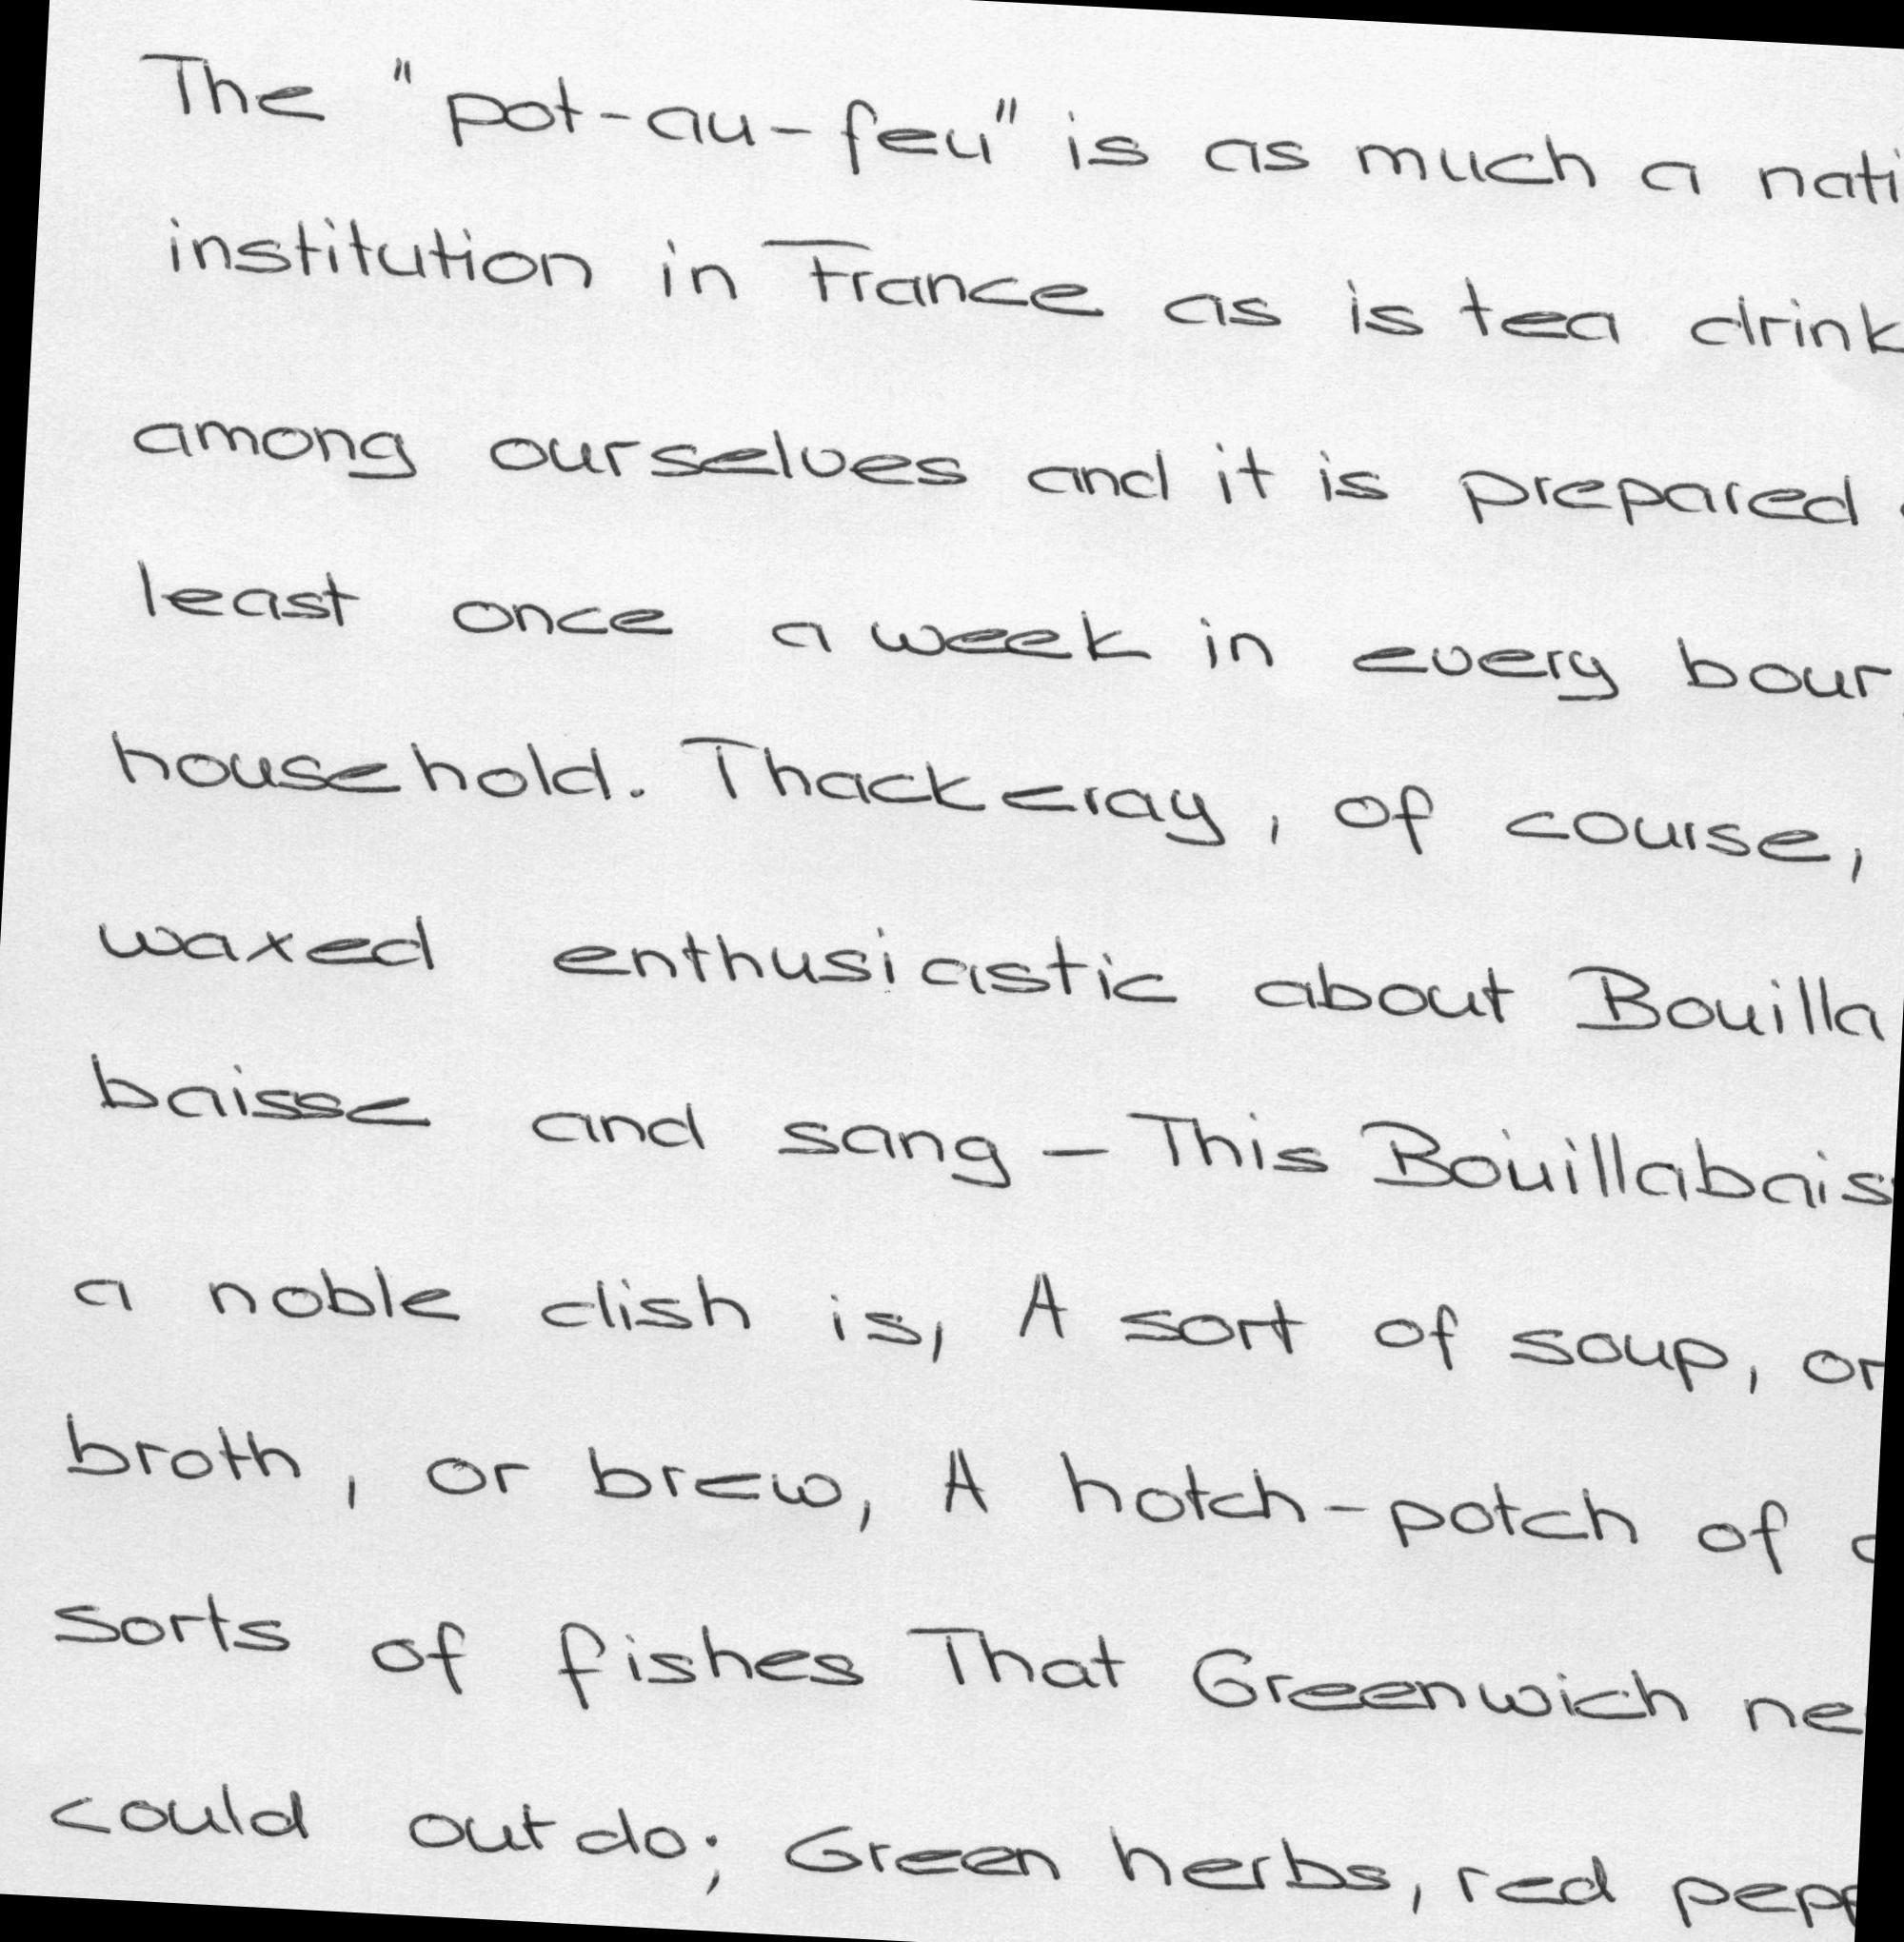 The "pot-au-feu" is as much a nati
institution in France as is tea drink
among ourselves and it is prepared
least once a week in every bour
household. Thackeray, of course,
waxed enthusiastic about Bouilla
baisse and sang - This Bouillabais
a noble dish is, A sort of soup, or
broth, or brew, A hotch-potch of
sorts of fishes That Greenwich ne
could outdo; Green herbs, red pepp